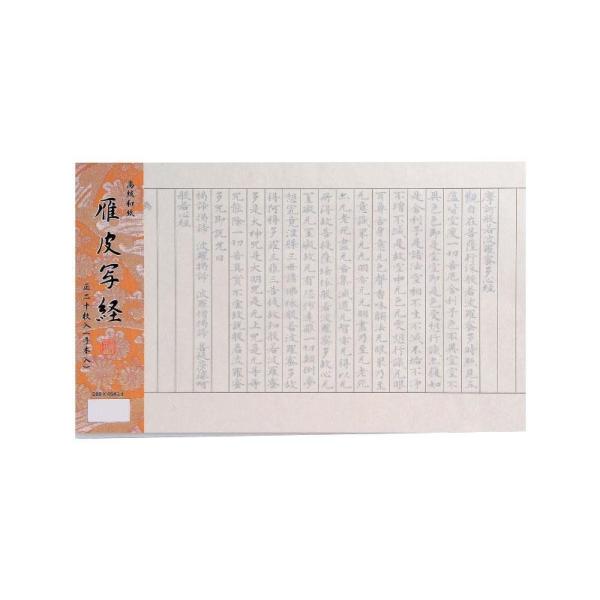 高級和紙
雁皮写経
正二十枚入(手本入)
摩訶般若波羅蜜多心経
觀自在菩薩行深般若波羅蜜多時照見五
蘊皆空度一切苦厄舍利子色不異空空不
異色色即是空空即是色受想行識亦復如
是舍利子是諸法空相不生不滅不垢不淨
不增不減是故空中无色无受想行識无眼
耳鼻舌身意无色聲香味觸法无眼界乃至
无意識界无无明亦无无明盡乃至无老死
亦无老死盡无苦集滅道无智亦无得以无
所得故菩提薩埵依般若波羅蜜多故心无
罣礙无罣礙故无有恐怖遠離一切顛倒夢
想究竟涅槃三世諸佛依般若波羅蜜多故
得阿耨多羅三藐三菩提故知般若波羅蜜
多是大神咒是大明咒是无上咒是无等等
咒能除一切苦真實不虚故說般若波羅蜜
多咒即說咒曰
揭諦揭諦 波羅揭諦 波羅僧揭諦 菩提薩婆訶
般若心経